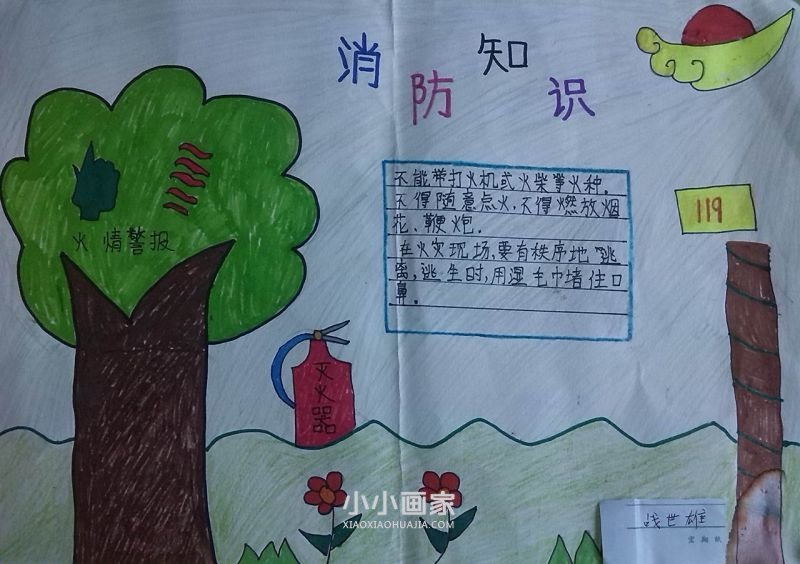 消防知识
119
不能带打火机或火柴等火种。
不得随意点火,不得燃放烟
花、鞭炮。
在火灾现场,要有秩序地逃
离,逃生时,用湿毛巾堵住口
鼻。
火情警报
灭火器
小小画家
XIAOXIAOHUAJIA.COM
战世雄